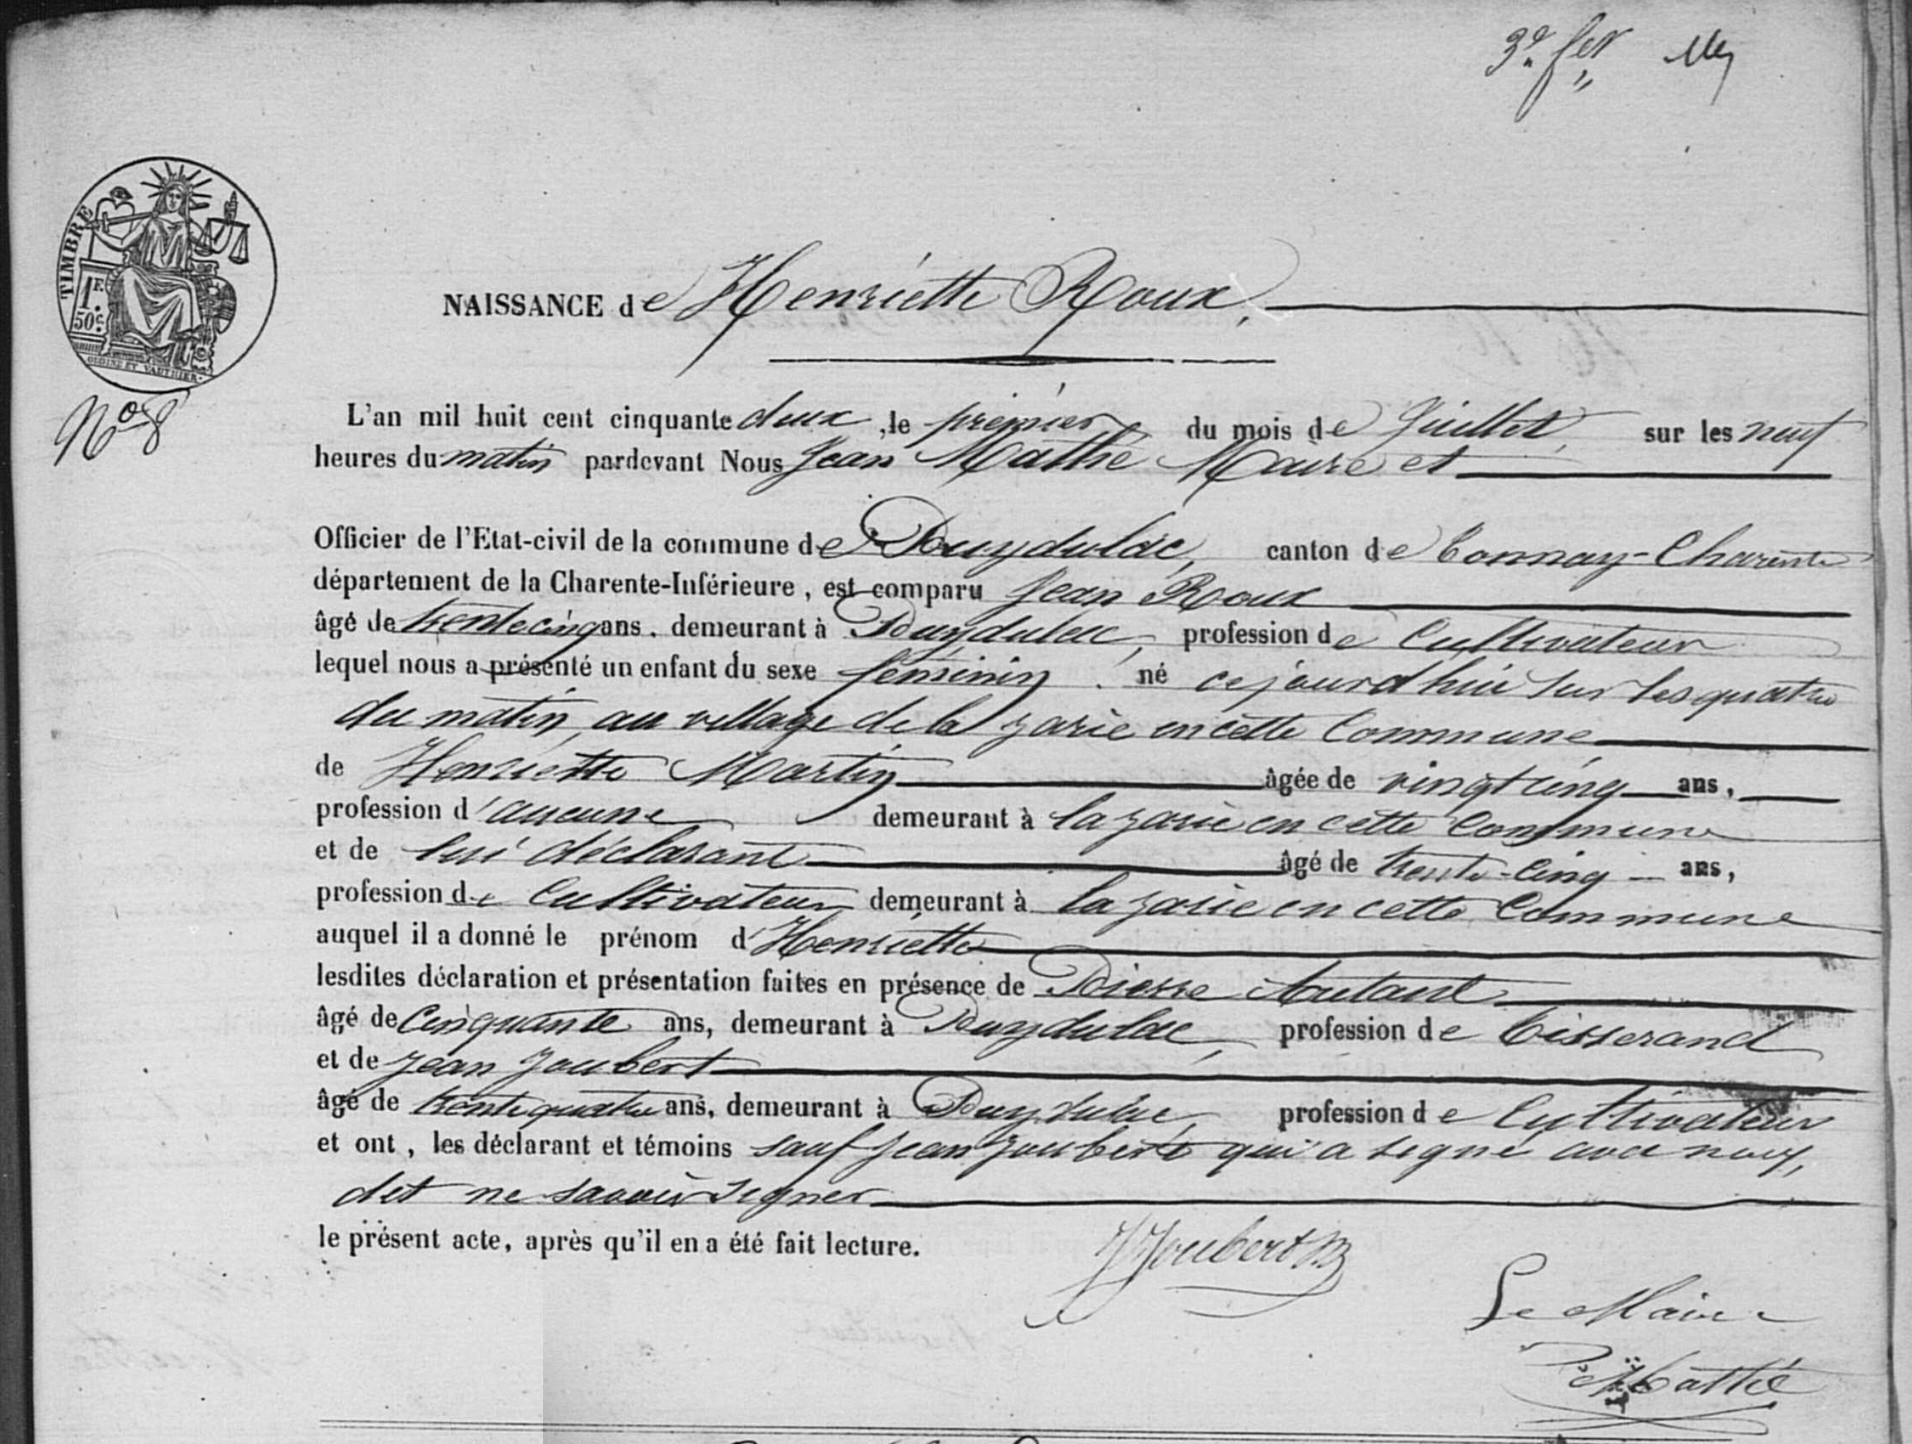 3e fer
TIMBRE
1F.
50c.
NAISSANCE de Henriette Roux,
No 8
L'an mil huit cent cinquante deux, le premier du mois de Juillet, sur les neuf
heures du matin pardevant Nous Jean Mathé Maire et
Officier de l'Etat-civil de la commune de Puydulac, canton de Tonnay-Charente
département de la Charente-Inférieure, est comparu Jean Roux
âgé de trente cinq ans. demeurant à Puydulac, profession de Cultivateur
lequel nous a présenté un enfant du sexe féminin. né cejourd'hui sur les quatre
du matin, au village de la zarie en cette Commune
de Henriette Martin âgée de vingt cinq ans,
profession d'aucune demeurant à la zarie en cette Commune
et de lui déclarant âgé de trente-cinq ans,
profession de Cultivateur demeurant à la zarie en cette Commune
auquel il a donné le prénom d'Henriette
lesdites déclaration et présentation faites en présence de Pierre Autant
âgé de Cinquante ans, demeurant à Puydulac, profession de tisserand
et de Jean Joubert
âgé de trente quatre ans, demeurant à Puydulac, profession de Cultivateur
et ont, les déclarant et témoins sauf Jean Joubert qui a signé avec nous,
dit ne savoir signer
le présent acte, après qu'il en a été fait lecture.
J Joubert
Le Maire
Mathé